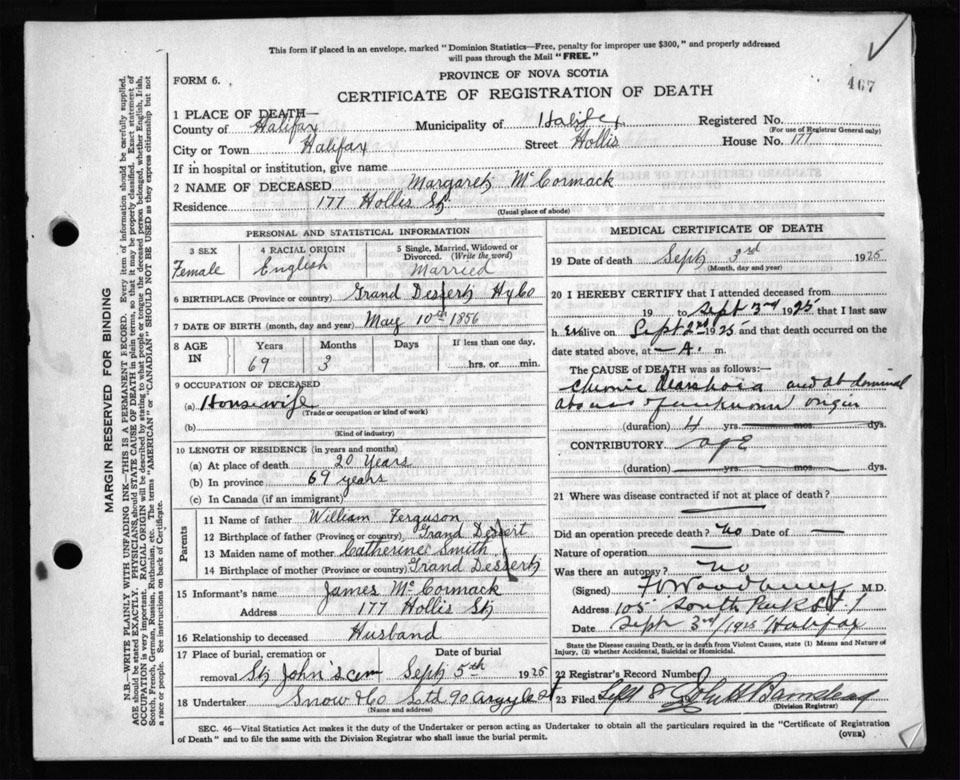 This form if placed in an envelope, marked "Dominion Statistics—Free, penalty for improper use $300," and properly addressed
will pass through the Mail "FREE."
467
FORM 6.
PROVINCE OF NOVA SCOTIA
CERTIFICATE OF REGISTRATION OF DEATH
1 PLACE OF DEATH—
County of Halifax Municipality of Halifax Registered No.
(For use of Registrar General only)
City or Town Halifax Street Hollis House No. 177
If in hospital or institution, give name
2 NAME OF DECEASED Margaret McCormack
Residence 177 Hollis St
(Usual place of abode)
PERSONAL AND STATISTICAL INFORMATION
3 SEX 4 RACIAL ORIGIN 5 Single, Married, Widowed or
Divorced. (Write the word)
Female English Married
6 BIRTHPLACE (Province or country) Grand Dessert Hx Co
7 DATE OF BIRTH (month, day and year) May 10th 1856
8 AGE IN Years Months Days If less than one day,
69 3 hrs. or min.
9 OCCUPATION OF DECEASED
(a) Housewife
(Trade or occupation or kind of work)
(b)
(Kind of industry)
10 LENGTH OF RESIDENCE (in years and months)
(a) At place of death 20 Years
(b) In province 69 years
(c) In Canada (if an immigrant)
Parents
11 Name of father William Ferguson
12 Birthplace of father (Province or country) Grand Dessert
13 Maiden name of mother Catherine Smith
14 Birthplace of mother (Province or country) Grand Dessert
15 Informant's name James McCormack
Address 177 Hollis St
16 Relationship to deceased Husband
17 Place of burial, cremation or Date of burial
removal St John's cem Sept 5th 1925
18 Undertaker Snow & Co Ltd 90 Argyle St
(Name and address)
MEDICAL CERTIFICATE OF DEATH
19 Date of death Sept 3rd 1925
(Month, day and year)
20 I HEREBY CERTIFY that I attended deceased from
19 to Sept 3rd 1925 that I last saw
h er alive on Sept 2nd 1925 and that death occurred on the
date stated above, at — A. m.
The CAUSE of DEATH was as follows:—
Chronic Diarrhoea and abdominal
abscess of unknown origin
(duration) 4 yrs. mos. dys.
CONTRIBUTORY age
(duration) yrs. mos. dys.
21 Where was disease contracted if not at place of death?
Did an operation precede death? no Date of —
Nature of operation —
Was there an autopsy? no
(Signed) Woodbury M.D.
Address 105 South Park St
Date Sept 3rd/1925 Halifax
State the Disease causing Death, or in death from Violent Causes, state (1) Means and Nature of
Injury, (2) whether Accidental, Suicidal or Homicidal.
22 Registrar's Record Number
23 Filed Sept 8 John H Barnstead
(Division Registrar)
SEC. 46—Vital Statistics Act makes it the duty of the Undertaker or person acting as Undertaker to obtain all the particulars required in the "Certificate of Registration
of Death" and to file the same with the Division Registrar who shall issue the burial permit.
(OVER)
MARGIN RESERVED FOR BINDING
N.B.—WRITE PLAINLY WITH UNFADING INK—THIS IS A PERMANENT RECORD. Every item of information should be carefully supplied.
AGE should be stated EXACTLY. PHYSICIANS should STATE CAUSE OF DEATH in plain terms, so that it may be properly classified. Exact statement of
OCCUPATION is very important. RACIAL ORIGIN will be described by stating to what people or tongue the deceased person belonged, whether English, Irish,
Scotch, French, German, Russian, Ruthenian, etc. The terms "AMERICAN" or "CANADIAN" SHOULD NOT BE USED as they express citizenship but not
a race or people. See instructions on back of Certificate.